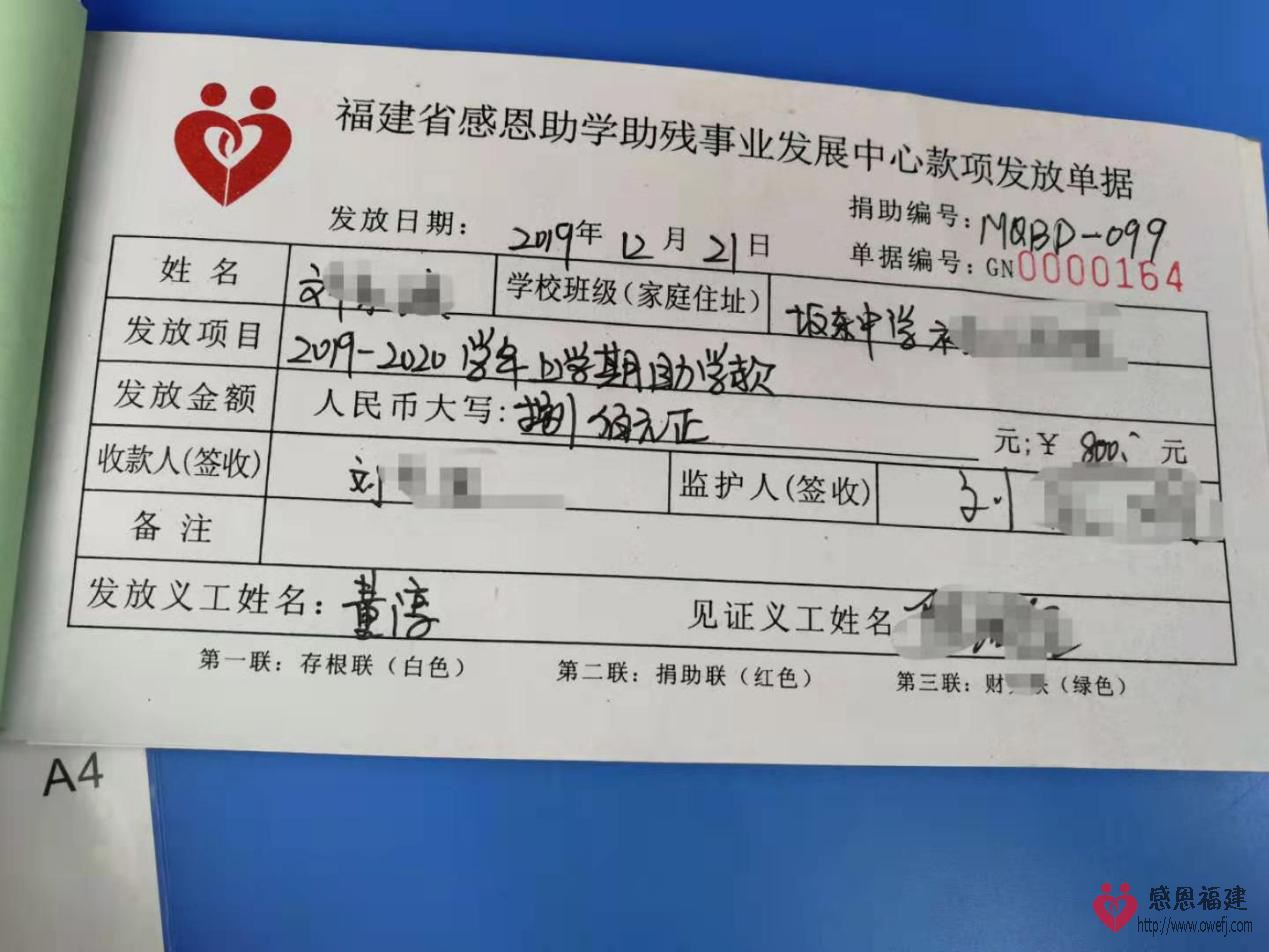 福建省感恩助学助残事业发展中心款项发放单据
捐助编号: MQBD-099
发放日期: 2019年 12月 21日
单据编号: GN0000164
姓名 刘 学校班级(家庭住址) 坂东中学
发放项目 2019-2020学年上学期助学款
发放金额 人民币大写: 捌佰元正 元;¥ 800. 元
收款人(签收) 刘 监护人(签收) 刘
备注
发放义工姓名: 董淳 见证义工姓名
第一联: 存根联 (白色) 第二联: 捐助联 (红色) 第三联: 财 联 (绿色)
A4
感恩福建
http://www.owefj.com